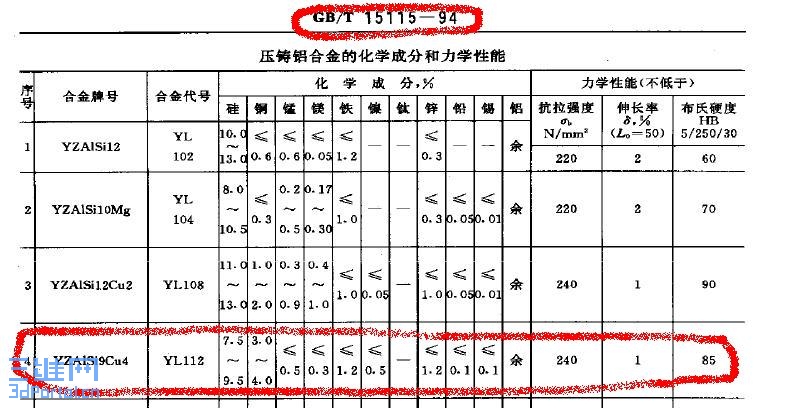 GB/T 15115—94
压铸铝合金的化学成分和力学性能
序号 合金牌号 合金代号 化学成分,% 力学性能(不低于)
硅 铜 锰 镁 铁 镍 钛 锌 铅 锡 铝 抗拉强度 σb N/mm² 伸长率 δ,% (L₀=50) 布氏硬度 HB 5/250/30
1 YZAlSi12 YL 102 10.0~13.0 ≤0.6 ≤0.6 ≤0.05 ≤1.2 — — ≤0.3 — — 余 220 2 60
2 YZAlSi10Mg YL 104 8.0~10.5 ≤0.3 0.2~0.5 0.17~0.30 ≤1.0 — — ≤0.3 ≤0.05 ≤0.01 余 220 2 70
3 YZAlSi12Cu2 YL108 11.0~13.0 1.0~2.0 0.3~0.9 0.4~1.0 ≤1.0 ≤0.05 — ≤1.0 ≤0.05 ≤0.01 余 240 1 90
4 YZAlSi9Cu4 YL112 7.5~9.5 3.0~4.0 ≤0.5 ≤0.3 ≤1.2 ≤0.5 — ≤1.2 ≤0.1 ≤0.1 余 240 1 85
三维网